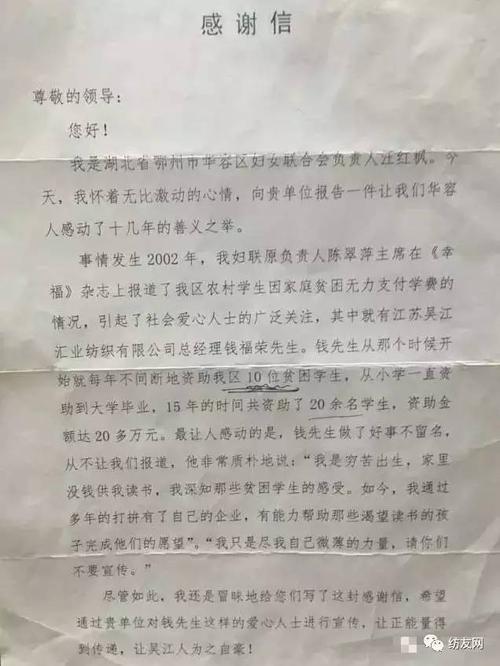 感谢信
尊敬的领导：
您好！
我是湖北省鄂州市华容区妇女联合会负责人汪红枫。今
天，我怀着无比激动的心情，向贵单位报告一件让我们华容
人感动了十几年的善义之举。
事情发生 2002 年，我妇联原负责人陈翠萍主席在《幸
福》杂志上报道了我区农村学生因家庭贫困无力支付学费的
情况，引起了社会爱心人士的广泛关注，其中就有江苏吴江
汇业纺织有限公司总经理钱福荣先生。钱先生从那个时候开
始就每年不间断地资助我区 10 位贫困学生，从小学一直资
助到大学毕业，15 年的时间共资助了 20 余名学生，资助金
额达 20 多万元。最让人感动的是，钱先生做了好事不留名，
从不让我们报道，他非常质朴地说：“我是穷苦出生，家里
没钱供我读书，我深知那些贫困学生的感受。如今，我通过
多年的打拼有了自己的企业，有能力帮助那些渴望读书的孩
子完成他们的愿望”。“我只是尽我自己微薄的力量，请你们
不要宣传。”
尽管如此，我还是冒昧地给您们写了这封感谢信，希望
通过贵单位对钱先生这样的爱心人士进行宣传，让正能量得
到传递，让吴江人为之自豪！
纺友网